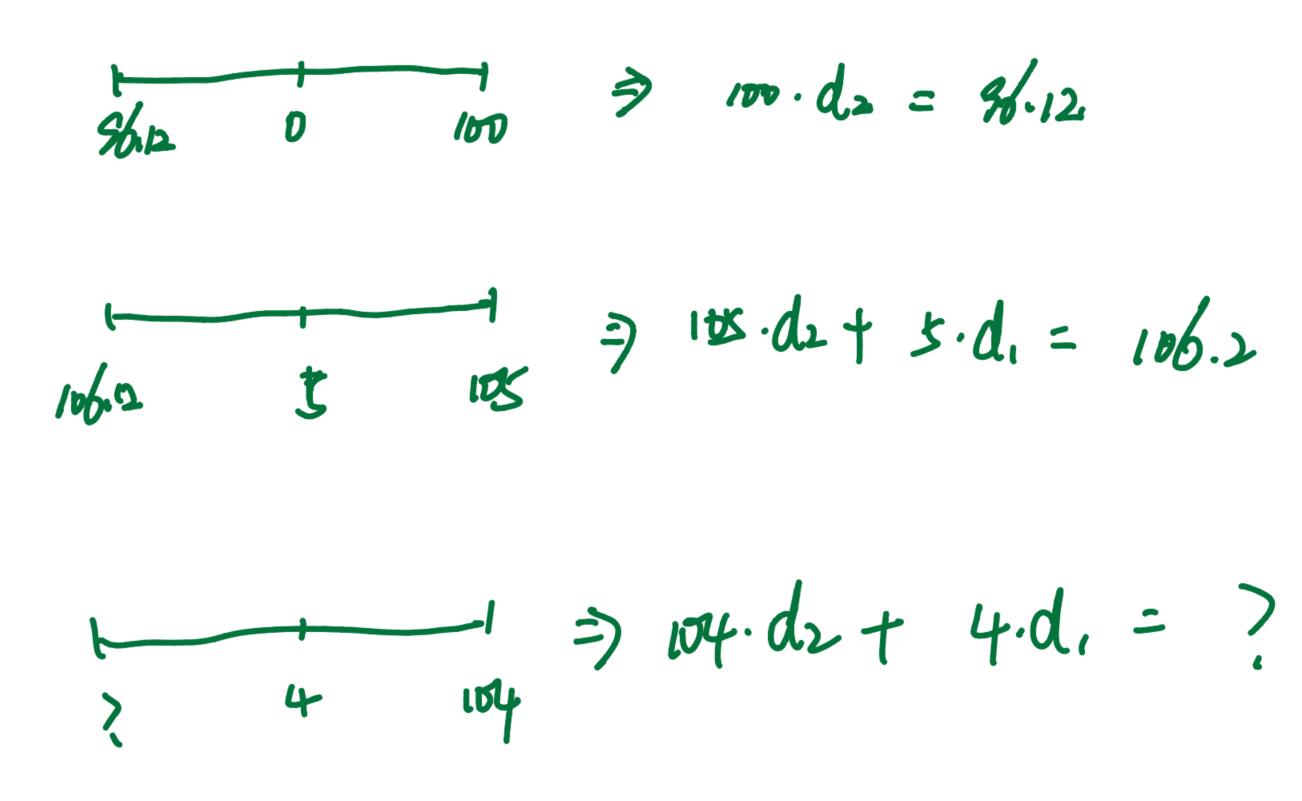 96.12 0 100 ⇒ 100·d₂ = 96.12
106.2 5 105 ⇒ 105·d₂ + 5·d₁ = 106.2
? 4 104 ⇒ 104·d₂ + 4·d₁ = ?